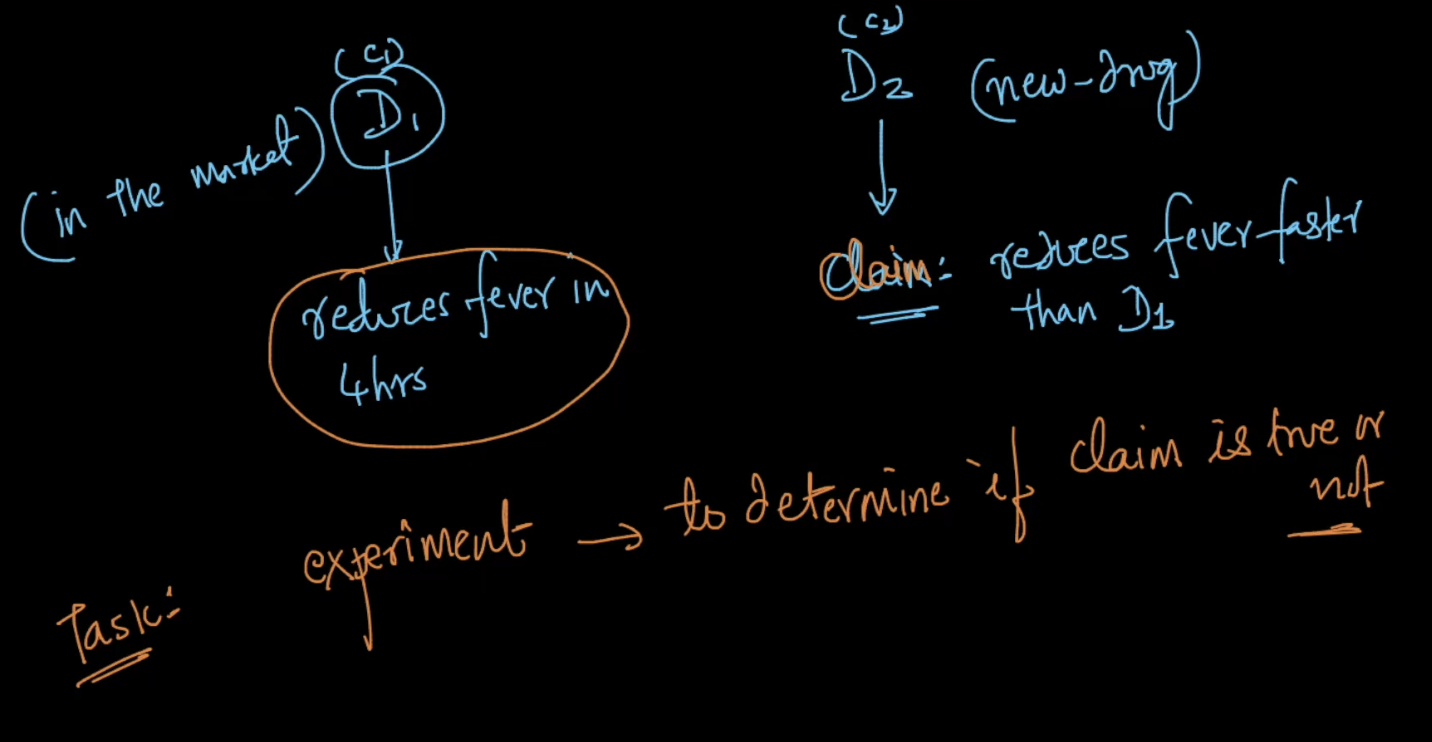 (C1)
D1
(in the market)
reduces fever in
4hrs
(C2)
D2 (new-drug)
Claim: reduces fever faster
than D1
Task: experiment → to determine if claim is true or
not